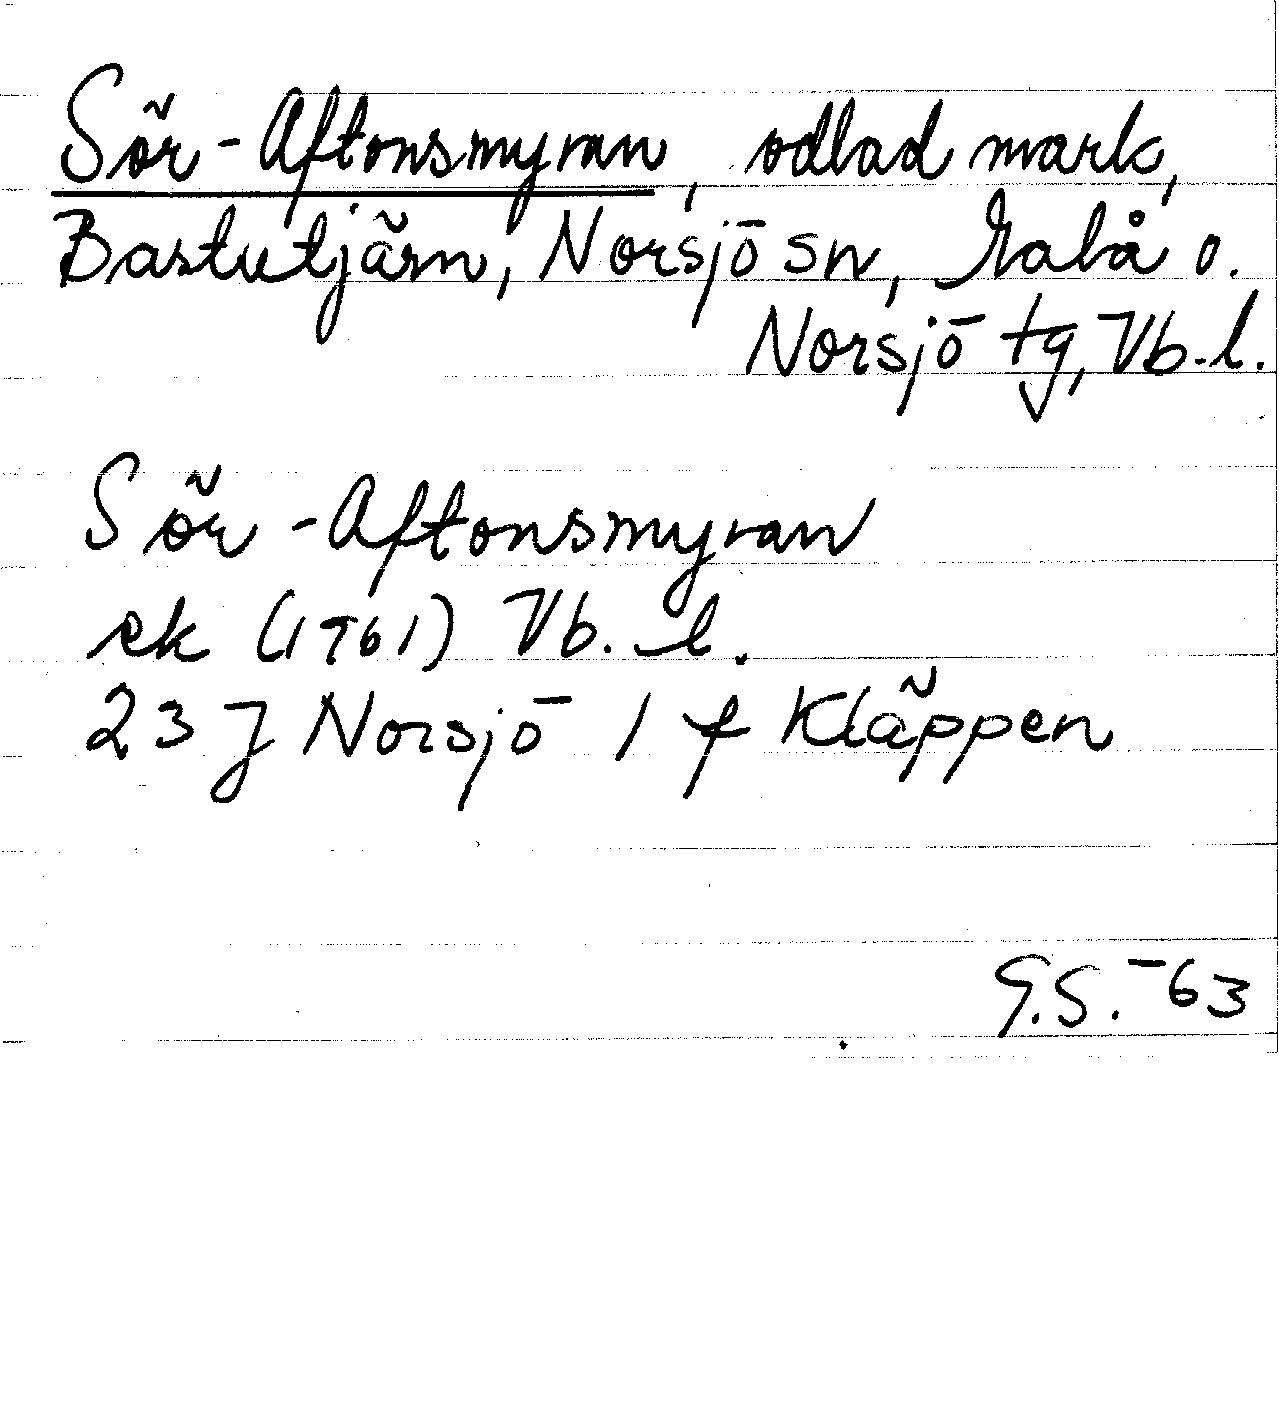 Sör-Aftonsmyran, odlad mark,
Bastutjärn, Norsjö sn, Malå o.
Norsjö tg, Vb. l.
Sör-Aftonsmyran
ek (1961) Vb. l.
23 J Norsjö 1 f Kläppen
G.S. -63